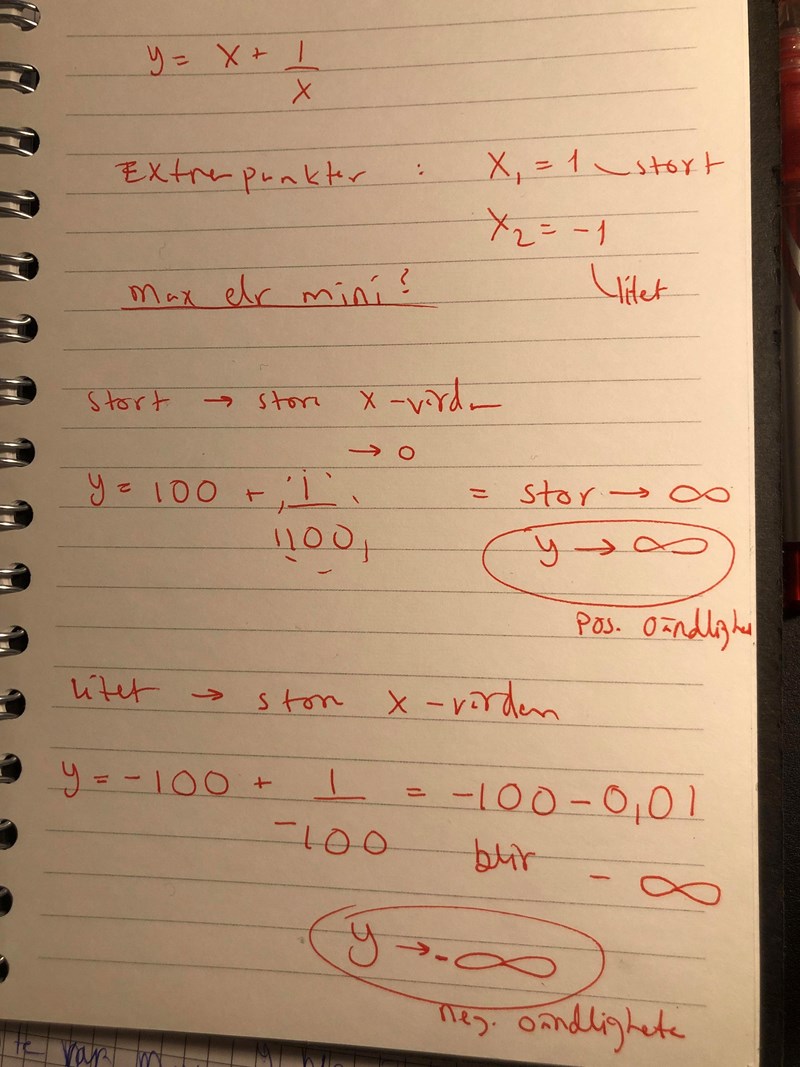 y = x + 1/x
Extrempunkter : x₁ = 1 stort
x₂ = -1
litet
Max elr mini?
stort → stora x-värden
→ 0
y = 100 + 1/100 = stor → ∞
y → ∞
pos. oändlighet
litet → stora x-värden
y = -100 + 1/-100 = -100 - 0,01
blir - ∞
y → -∞
neg. oändlighete